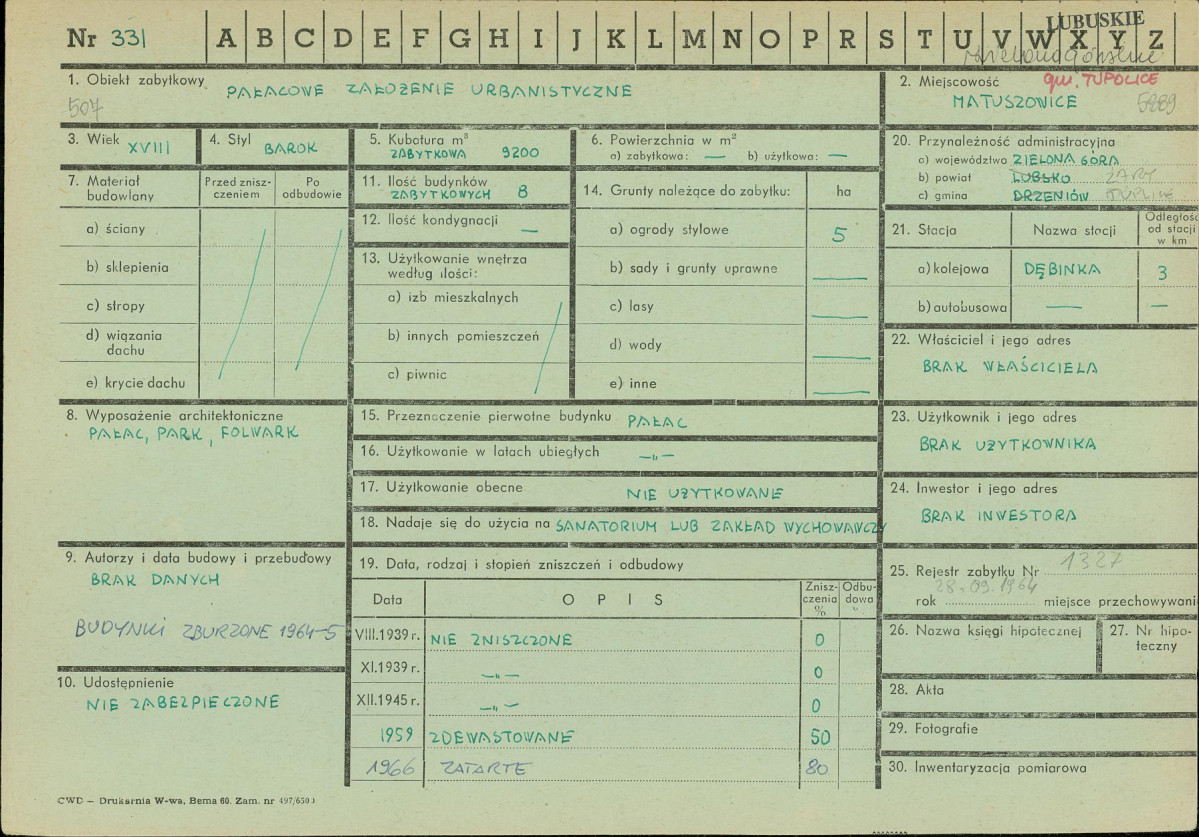 LUBUSKIE
Nr 331 A B C D E F G H I J K L M N O P R S T U V W X Y Z
Wielkopolskie
1. Obiekt zabytkowy PAŁACOWE ZAŁOŻENIE URBANISTYCZNE
507
2. Miejscowość gm. TUPOLICE
MATUSZOWICE 5289
3. Wiek XVIII
4. Styl BAROK
5. Kubatura m³
ZABYTKOWA 9200
6. Powierzchnia w m²
a) zabytkowa: — b) użytkowa: —
20. Przynależność administracyjna
a) województwo ZIELONA GÓRA
b) powiat LUBSKO ŻARY
c) gmina DRZENIÓW TUPLICE
7. Materiał budowlany
Przed zniszczeniem
Po odbudowie
a) ściany
b) sklepienia
c) stropy
d) wiązania dachu
e) krycie dachu
11. Ilość budynków
ZABYTKOWYCH 8
12. Ilość kondygnacji —
13. Użytkowanie wnętrza
według ilości:
a) izb mieszkalnych
b) innych pomieszczeń
c) piwnic
14. Grunty należące do zabytku: ha
a) ogrody stylowe 5
b) sady i grunty uprawne —
c) lasy —
d) wody —
e) inne —
21. Stacja Nazwa stacji Odległość od stacji w km
a) kolejowa DĘBINKA 3
b) autobusowa — —
22. Właściciel i jego adres
BRAK WŁAŚCICIELA
8. Wyposażenie architektoniczne
PAŁAC, PARK, FOLWARK
15. Przeznaczenie pierwotne budynku PAŁAC
16. Użytkowanie w latach ubiegłych —„—
17. Użytkowanie obecne NIE UŻYTKOWANE
18. Nadaje się do użycia na SANATORIUM LUB ZAKŁAD WYCHOWAWCZY
23. Użytkownik i jego adres
BRAK UŻYTKOWNIKA
24. Inwestor i jego adres
BRAK INWESTORA
9. Autorzy i data budowy i przebudowy
BRAK DANYCH
BUDYNKI ZBURZONE 1964-5
10. Udostępnienie
NIE ZABEZPIECZONE
19. Data, rodzaj i stopień zniszczeń i odbudowy
Data OPIS Zniszczenia % Odbudowa %
VIII.1939 r. NIE ZNISZCZONE 0
XI.1939 r. —„— 0
XII.1945 r. —„— 0
1959 ZDEWASTOWANE 50
1966 ZATARTE 80
25. Rejestr zabytku Nr 1327
rok 28.09.1964 miejsce przechowywani
26. Nazwa księgi hipotecznej
27. Nr hipoteczny
28. Akta
29. Fotografie
30. Inwentaryzacja pomiarowa
CWD – Drukarnia W-wa, Bema 60. Zam. nr 497/650